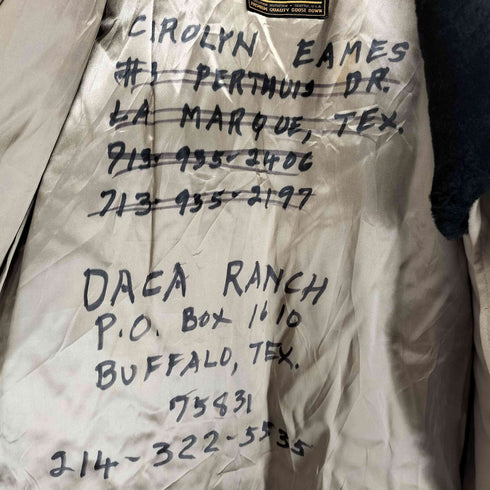 SEATTLE, U.S.A.
PREMIUM QUALITY GOOSE DOWN
CAROLYN EAMES
#3 PERTHUIS DR.
LA MARQUE, TEX.
713-935-2406
713-935-2197
DACA RANCH
P.O. BOX 1610
BUFFALO, TEX.
75831
214-322-5535